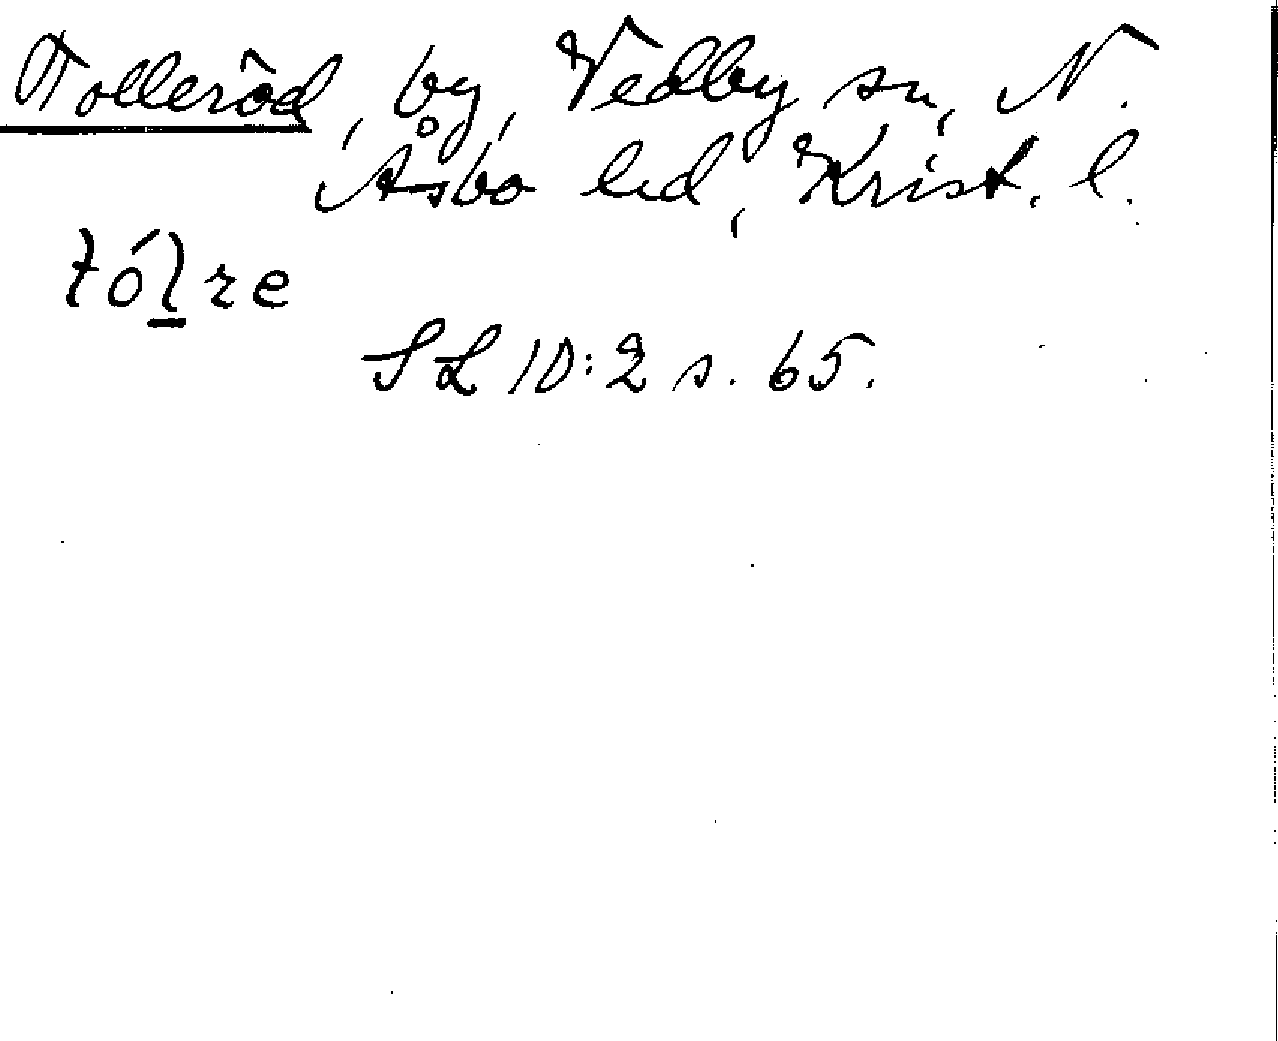 Tolleröd, by, Vedby sn, N.
Åsbo hd, Krist. l.
tól̲re
SL 10:2 s. 65.